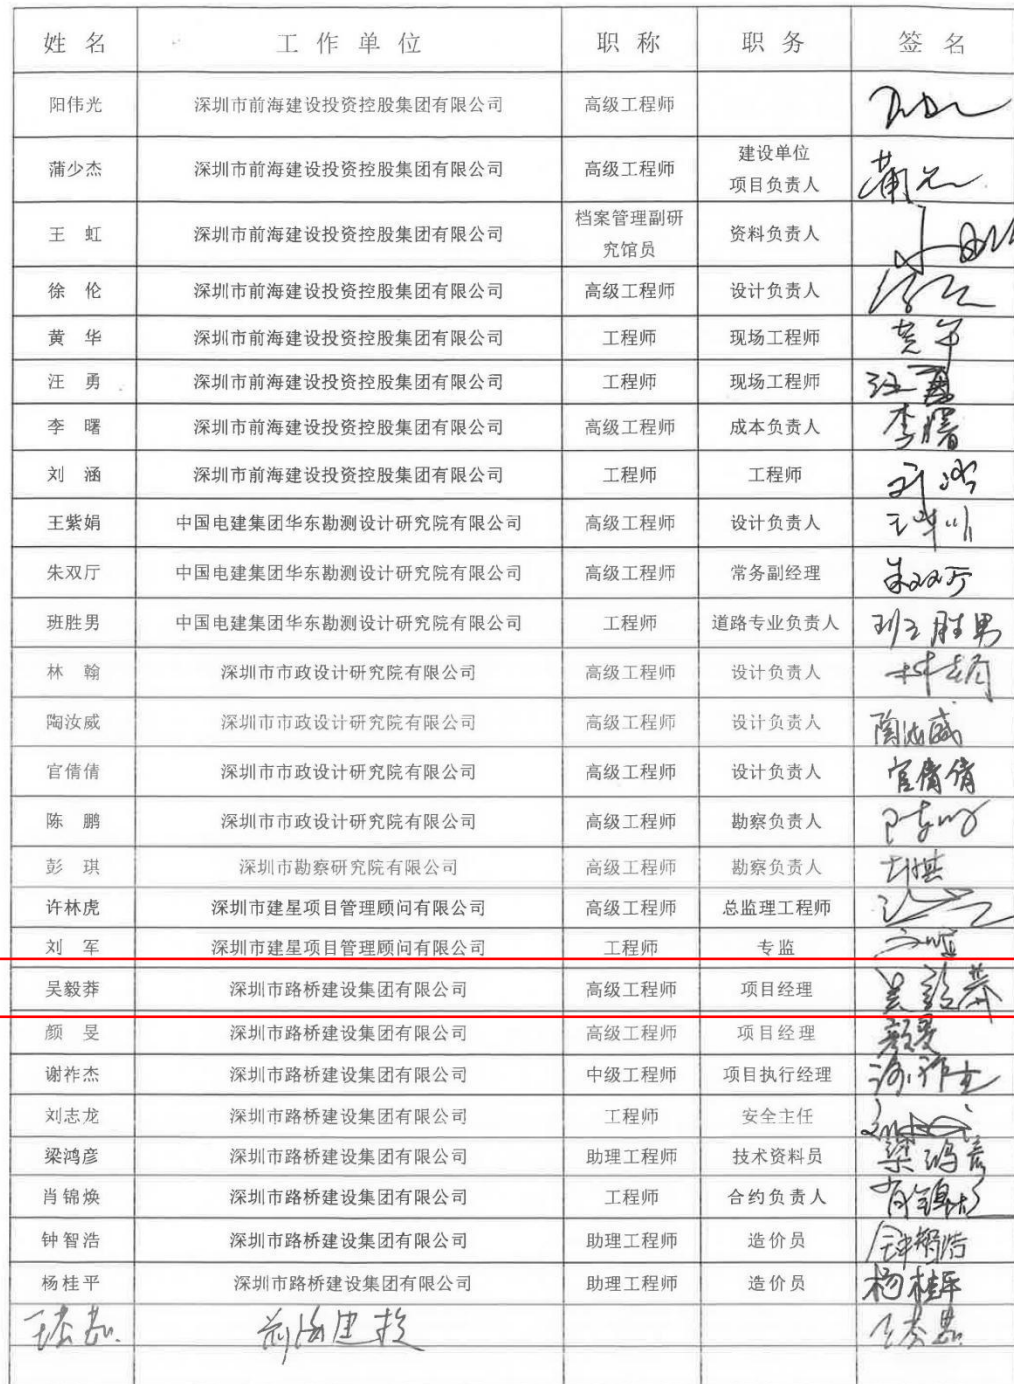 姓 名 工 作 单 位 职 称 职 务 签 名
阳伟光 深圳市前海建设投资控股集团有限公司 高级工程师
蒲少杰 深圳市前海建设投资控股集团有限公司 高级工程师 建设单位
项目负责人
王 虹 深圳市前海建设投资控股集团有限公司 档案管理副研
究馆员 资料负责人
徐 伦 深圳市前海建设投资控股集团有限公司 高级工程师 设计负责人
黄 华 深圳市前海建设投资控股集团有限公司 工程师 现场工程师
汪 勇 深圳市前海建设投资控股集团有限公司 工程师 现场工程师 汪勇
李 曙 深圳市前海建设投资控股集团有限公司 高级工程师 成本负责人 李曙
刘 涵 深圳市前海建设投资控股集团有限公司 工程师 工程师
王紫娟 中国电建集团华东勘测设计研究院有限公司 高级工程师 设计负责人
朱双厅 中国电建集团华东勘测设计研究院有限公司 高级工程师 常务副经理 朱双厅
班胜男 中国电建集团华东勘测设计研究院有限公司 工程师 道路专业负责人 班胜男
林 翰 深圳市市政设计研究院有限公司 高级工程师 设计负责人 林翰
陶汝威 深圳市市政设计研究院有限公司 高级工程师 设计负责人 陶汝威
官倩倩 深圳市市政设计研究院有限公司 高级工程师 设计负责人 官倩倩
陈 鹏 深圳市市政设计研究院有限公司 高级工程师 勘察负责人 陈鹏
彭 琪 深圳市勘察研究院有限公司 高级工程师 勘察负责人 彭琪
许林虎 深圳市建星项目管理顾问有限公司 高级工程师 总监理工程师
刘 军 深圳市建星项目管理顾问有限公司 工程师 专监
吴毅莽 深圳市路桥建设集团有限公司 高级工程师 项目经理 吴毅莽
颜 旻 深圳市路桥建设集团有限公司 高级工程师 项目经理 颜旻
谢祚杰 深圳市路桥建设集团有限公司 中级工程师 项目执行经理 谢祚杰
刘志龙 深圳市路桥建设集团有限公司 工程师 安全主任
梁鸿彦 深圳市路桥建设集团有限公司 助理工程师 技术资料员 梁鸿彦
肖锦焕 深圳市路桥建设集团有限公司 工程师 合约负责人 肖锦焕
钟智浩 深圳市路桥建设集团有限公司 助理工程师 造价员 钟智浩
杨桂平 深圳市路桥建设集团有限公司 助理工程师 造价员 杨桂平
前海建投